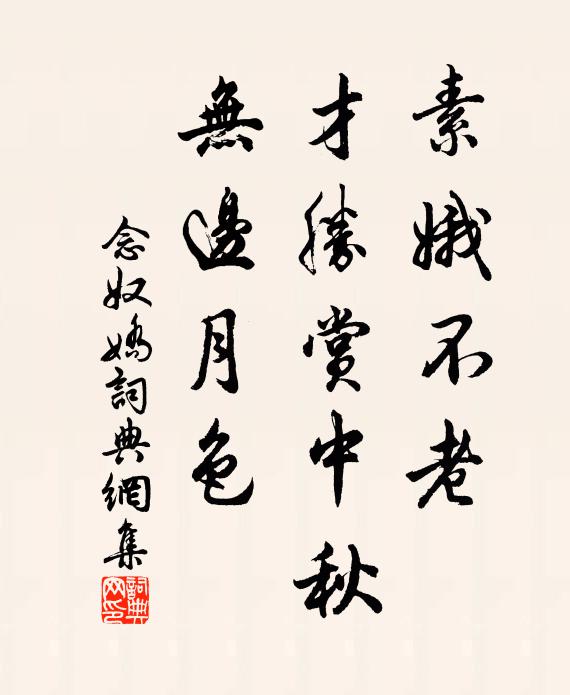 素娥不老
才勝賞中秋
無邊月色
念奴嬌詞典網集
詞典
网印